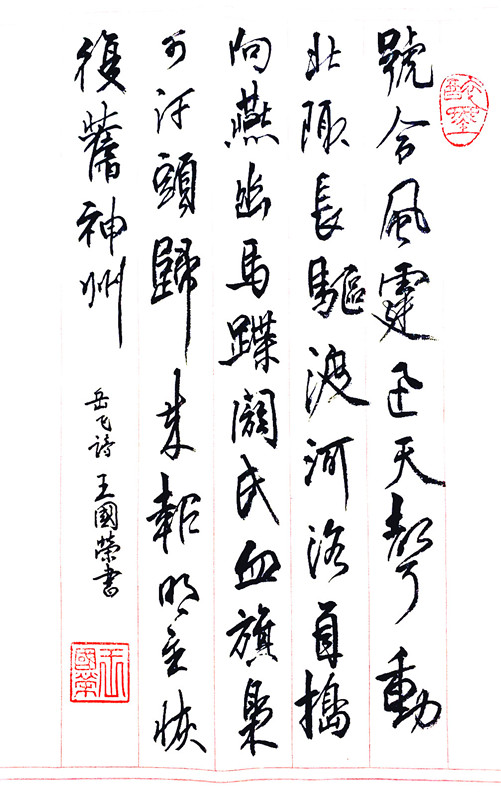 號令風霆迅天聲動
北陬長驅渡河洛直搗
向燕幽馬蹀閼氏血旗梟
可汗頭歸來報明主恢
復舊神州
岳飞詩 王國榮書
王國榮